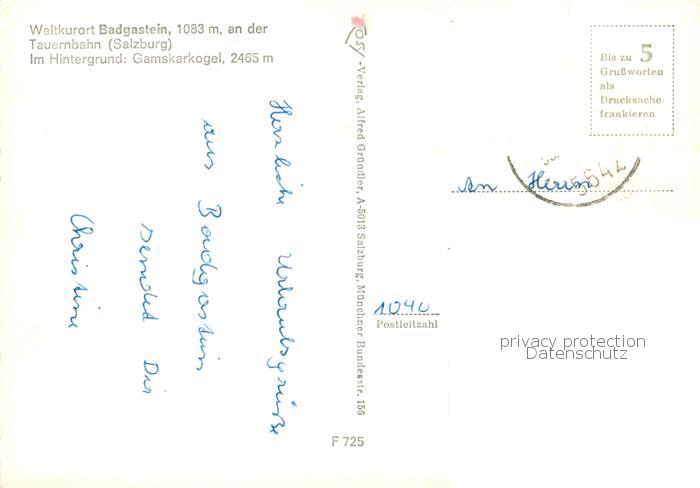 Weltkurort Badgastein, 1083 m, an der
Tauernbahn (Salzburg)
Im Hintergrund: Gamskarkogel, 2465 m
Herzliche Urlaubsgrüße
aus Badgastein
sendet Dir
Christine
Rosy-Verlag, Alfred Gründler, A-5013 Salzburg, Münchner Bundesstr. 156
F 725
Bis zu 5
Grußworten
als
Drucksache
frankieren
5542
An Herrn
1040
Postleitzahl
privacy protection
Datenschutz